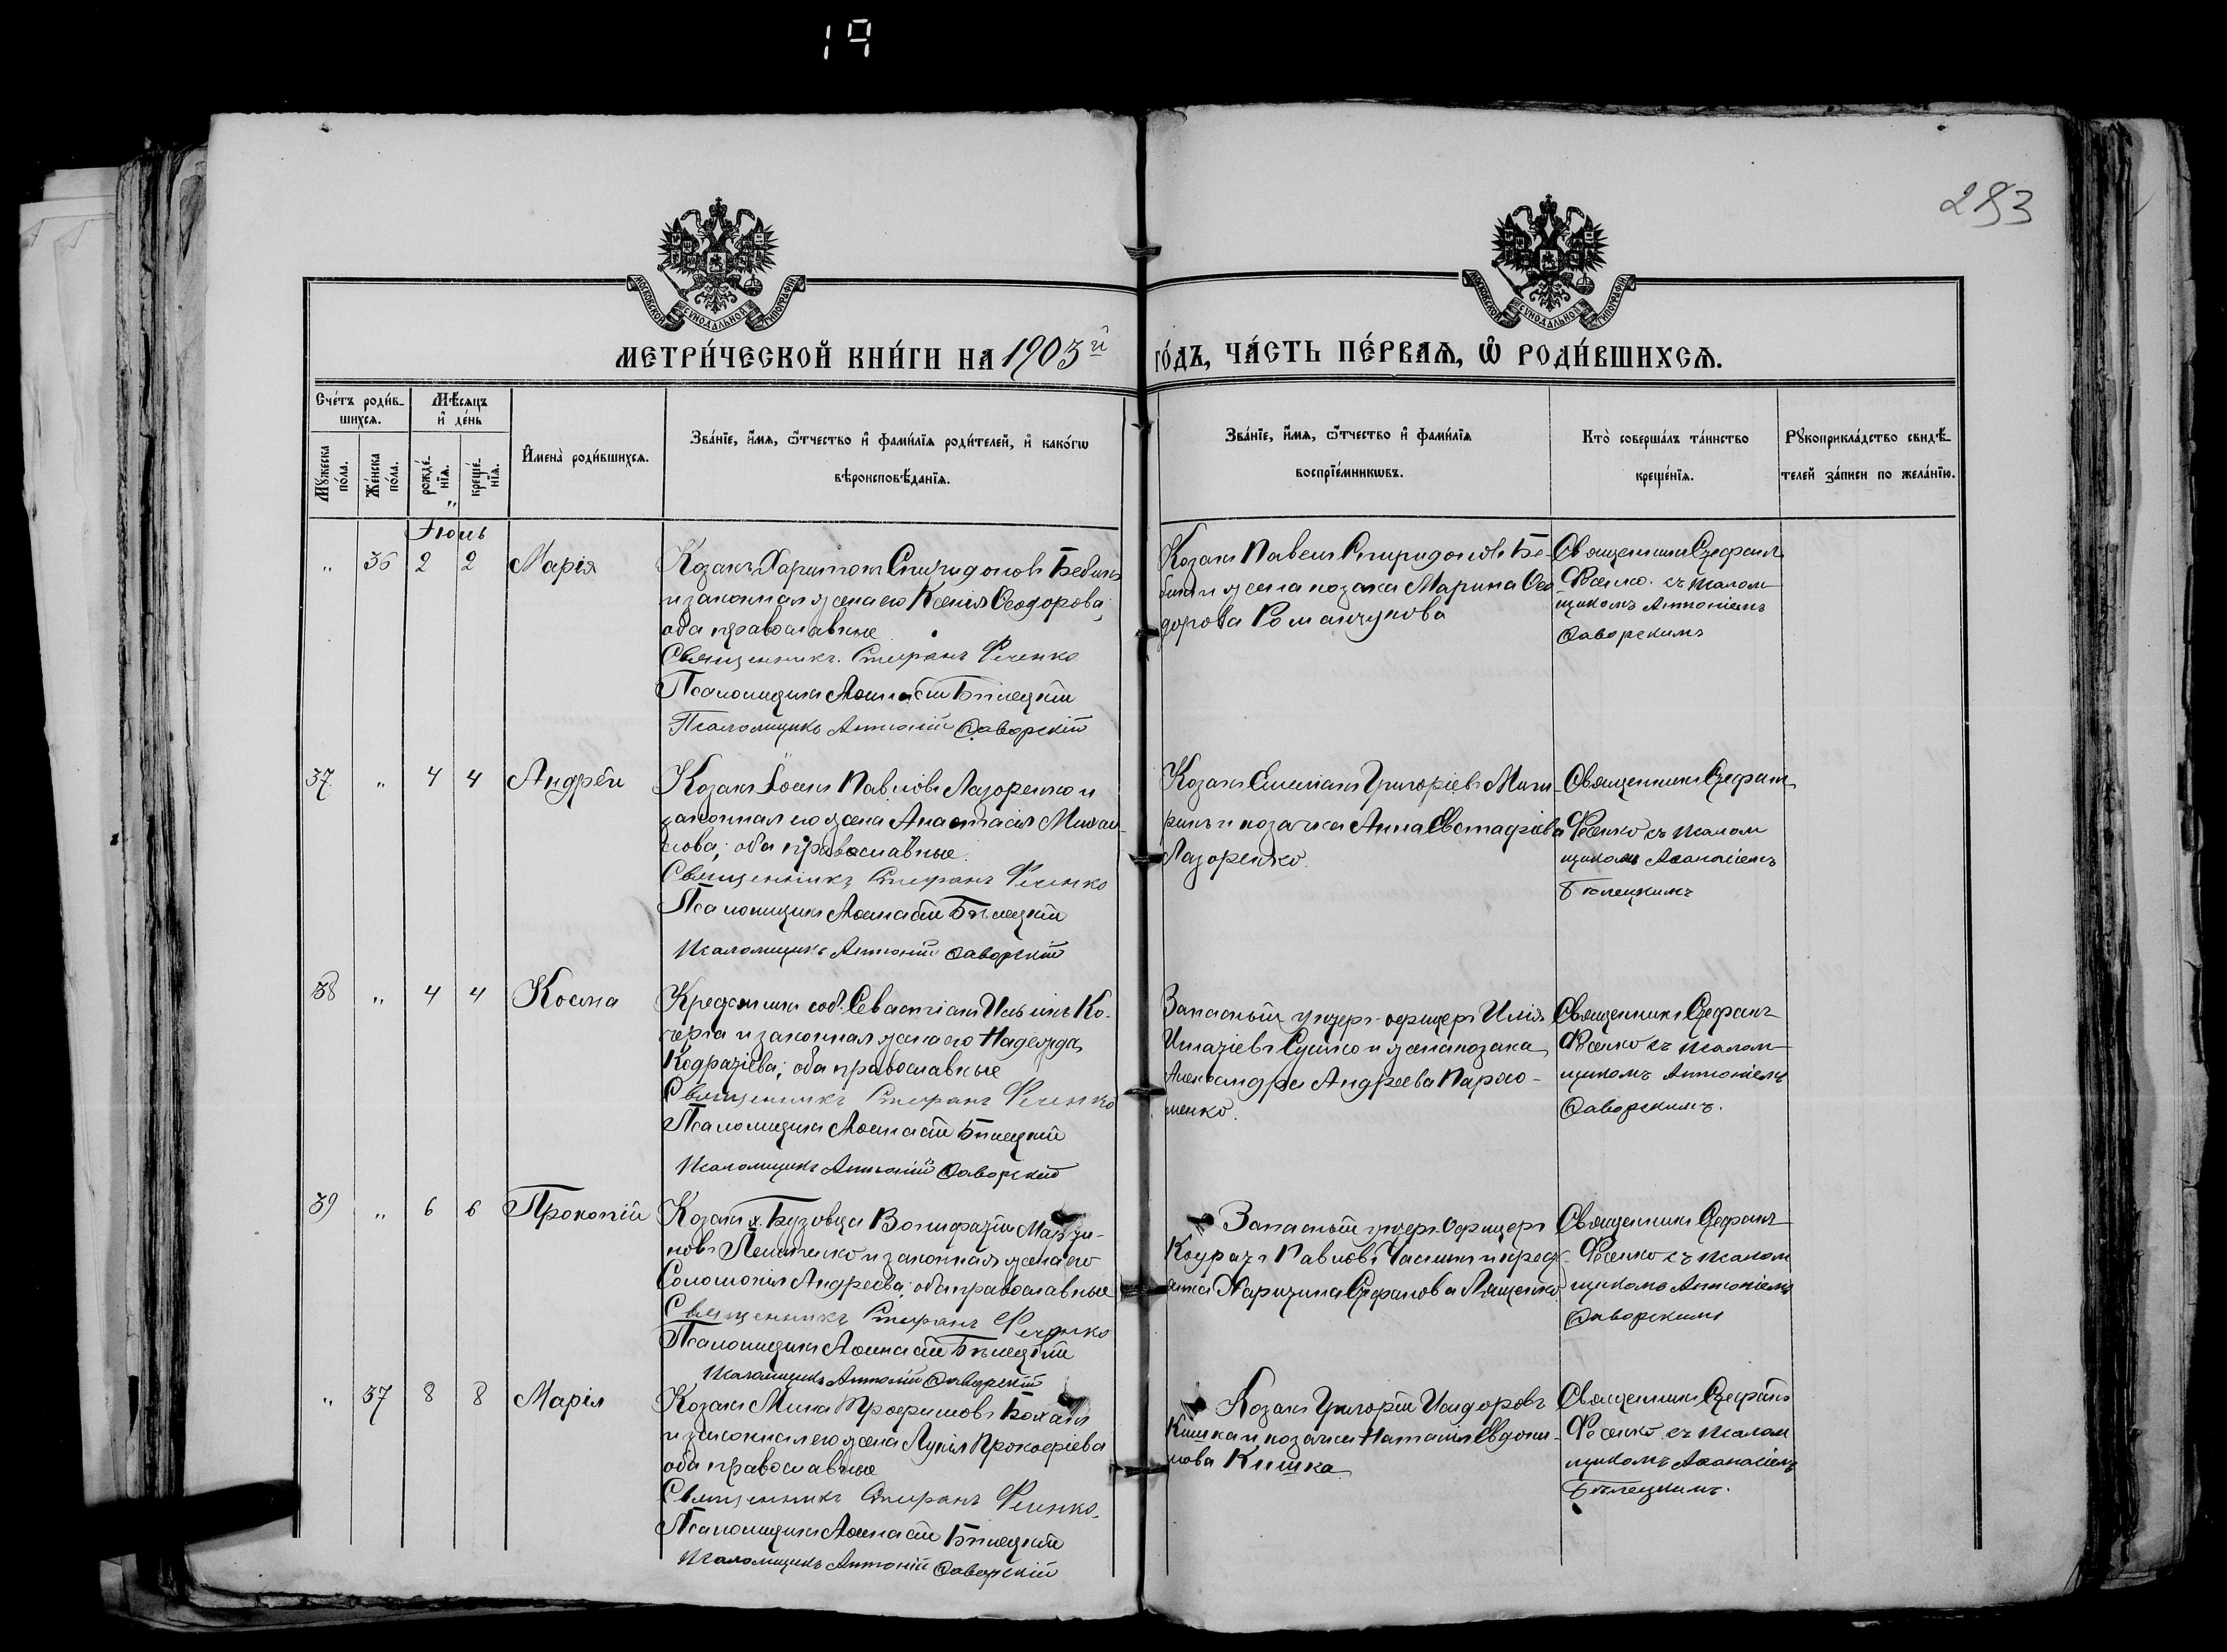 19
283
МОСКОВСКОЙ СУНОДАЛЬНОЙ ТИПОГРАФІИ
МОСКОВСКОЙ СУНОДАЛЬНОЙ ТИПОГРАФІИ
МЕТРИ́ЧЕСКОЙ КНИ́ГИ НА 1903й ГО́ДЪ, ЧА́СТЬ ПЕ́РВАЯ, Ѡ҆ РОДИ́ВШИХСЯ.
Сче́тъ роди́в-
шихся.
Мꙋжеска
по́ла.
Же́нска
по́ла.
Мѣ́сяцъ
и҆ де́нь
рожде́-
нїя.
креще́-
нїя.
И҆мена̀ роди́вшихся.
Зва́нїе, и҆́мя, ѻ҆́тчество и҆ фами́лїя роди́телей, и҆ како́гѡ
вѣроисповѣ́данїя.
Зва́нїе, и҆́мя, ѻ҆́тчество и҆ фами́лїя
воспрїе́мникѡвъ.
Кто̀ соверша́лъ та́инство
креще́нїя.
Рꙋкоприкла́дство свидѣ́-
телей за́писи по жела́нїю.
Іюнь
" 36 2 2 Марія
Козакъ Харитонъ Спиридоновъ Бебикъ
и законная жена его Ксенія Ѳеодорова;
оба православные
Священникъ Стефанъ Ѳесенко
Псаломщикъ Аѳанасій Бѣлецкій
Псаломщикъ Антоній Ѳаворскій
Козакъ Павелъ Спиридоновъ Бе-
бикъ и жена козака Марина Ѳео
дорова Романчукова
Священникъ Стефанъ
Ѳесенко съ псалом
щикомъ Антоніемъ
Ѳаворскимъ
37 " 4 4 Андрей
Козакъ Іоаннъ Павловъ Лазоренко и
законная его жена Анастасія Михаи-
лова; оба православные.
Священникъ Стефанъ Ѳесенко
Псаломщикъ Аѳанасій Бѣлецкій
Псаломщикъ Антоній Ѳаворскій
Козакъ Григоріевъ
и козачка Анна Евстафіева
Лазоренко.
Священникъ Стефанъ
Ѳесенко съ псалом
щикомъ Аѳанасіемъ
Бѣлецкимъ
38 " 4 4 Косма
соб. Севастіанъ Ильинъ Ко-
черга и законная жена его Надежда
Кодратіева; оба православные
Священникъ Стефанъ Ѳесенко
Псаломщикъ Аѳанасій Бѣлецкій
Псаломщикъ Антоній Ѳаворскій
Запасный унтеръ-офицеръ Илія
Игнатіевъ Сушко и жена козака
Александра Андреева Пархо-
менко.
Священникъ Стефанъ
Ѳесенко съ псалом
щикомъ Антоніемъ
Ѳаворскимъ.
39 " 6 6 Прокопій
Козакъ х. Бузовца Вонифатій Марти-
новъ и законная жена его
Соломонія Андреева; оба православные
Священникъ Стефанъ Ѳесенко
Псаломщикъ Аѳанасій Бѣлецкій
Псаломщикъ Антоній Ѳаворскій
Запасный унтеръ Офицеръ
Кодратъ Павловъ и крест
янка Харитина Стефанова Лященко
Священникъ Стефанъ
Ѳесенко съ псалом
щикомъ Антоніемъ
Ѳаворскимъ
" 37 8 8 Марія
Козакъ Мина Трофимовъ Боханъ
и законная его жена Лукія Прокофіева
оба православные
Священникъ Стефанъ Ѳесенко.
Псаломщикъ Аѳанасій Бѣлецкій
Псаломщикъ Антоній Ѳаворскій
Козакъ Григорій Исидоровъ
Кишка и козачка Наталія Евдоки-
мова Кишка
Священникъ Стефанъ
Ѳесенко съ псалом
щикомъ Аѳанасіемъ
Бѣлецкимъ.